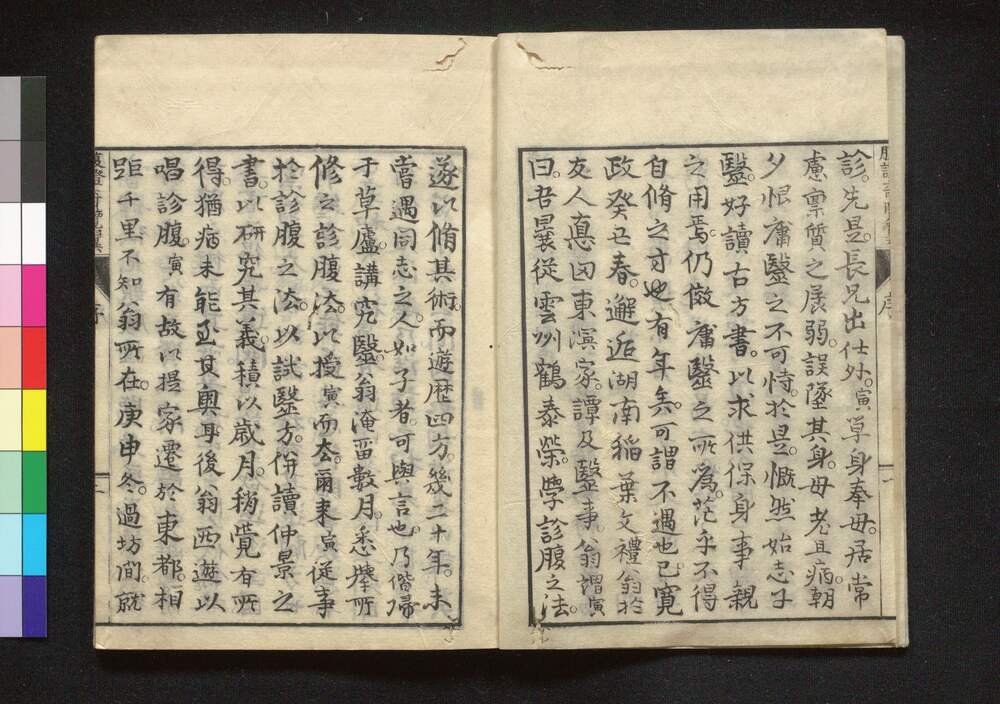 診。先是。長兄出仕外。寅單身奉母。居常
慮禀質之孱弱。誤墜其身。母老且病。朝
夕恨庸毉之不可恃。於是。慨然始志于
毉。好讀古方書。以求供保身事親
之用焉。仍倣庸毉之所爲。茫乎不得
自脩之寸也有年矣。可謂不遇也已。寛
政癸丑春。邂逅湖南稲葉文禮翁於
友人惪因東溟家。譚及毉事。翁謂寅
曰。吾曩從雲州鶴泰榮。學診腹之法。
遂以脩其術。而遊歴四方。幾二十年。未
嘗遇同志之人如子者。可與言也。乃偕歸
于草廬。講究毉翁淹畱數月。悉擧所
修之診腹法。以授寅而去。爾来寅從事
於診腹之法。以試毉方。併讀仲景之
書。以研究其義。積以歳月。稍覺有所
得。猶病未能至其奥耳。後翁西遊以
唱診腹。寅有故以提家遷於東都。相
距千里不知翁所在。庚申冬。過坊間。就
序